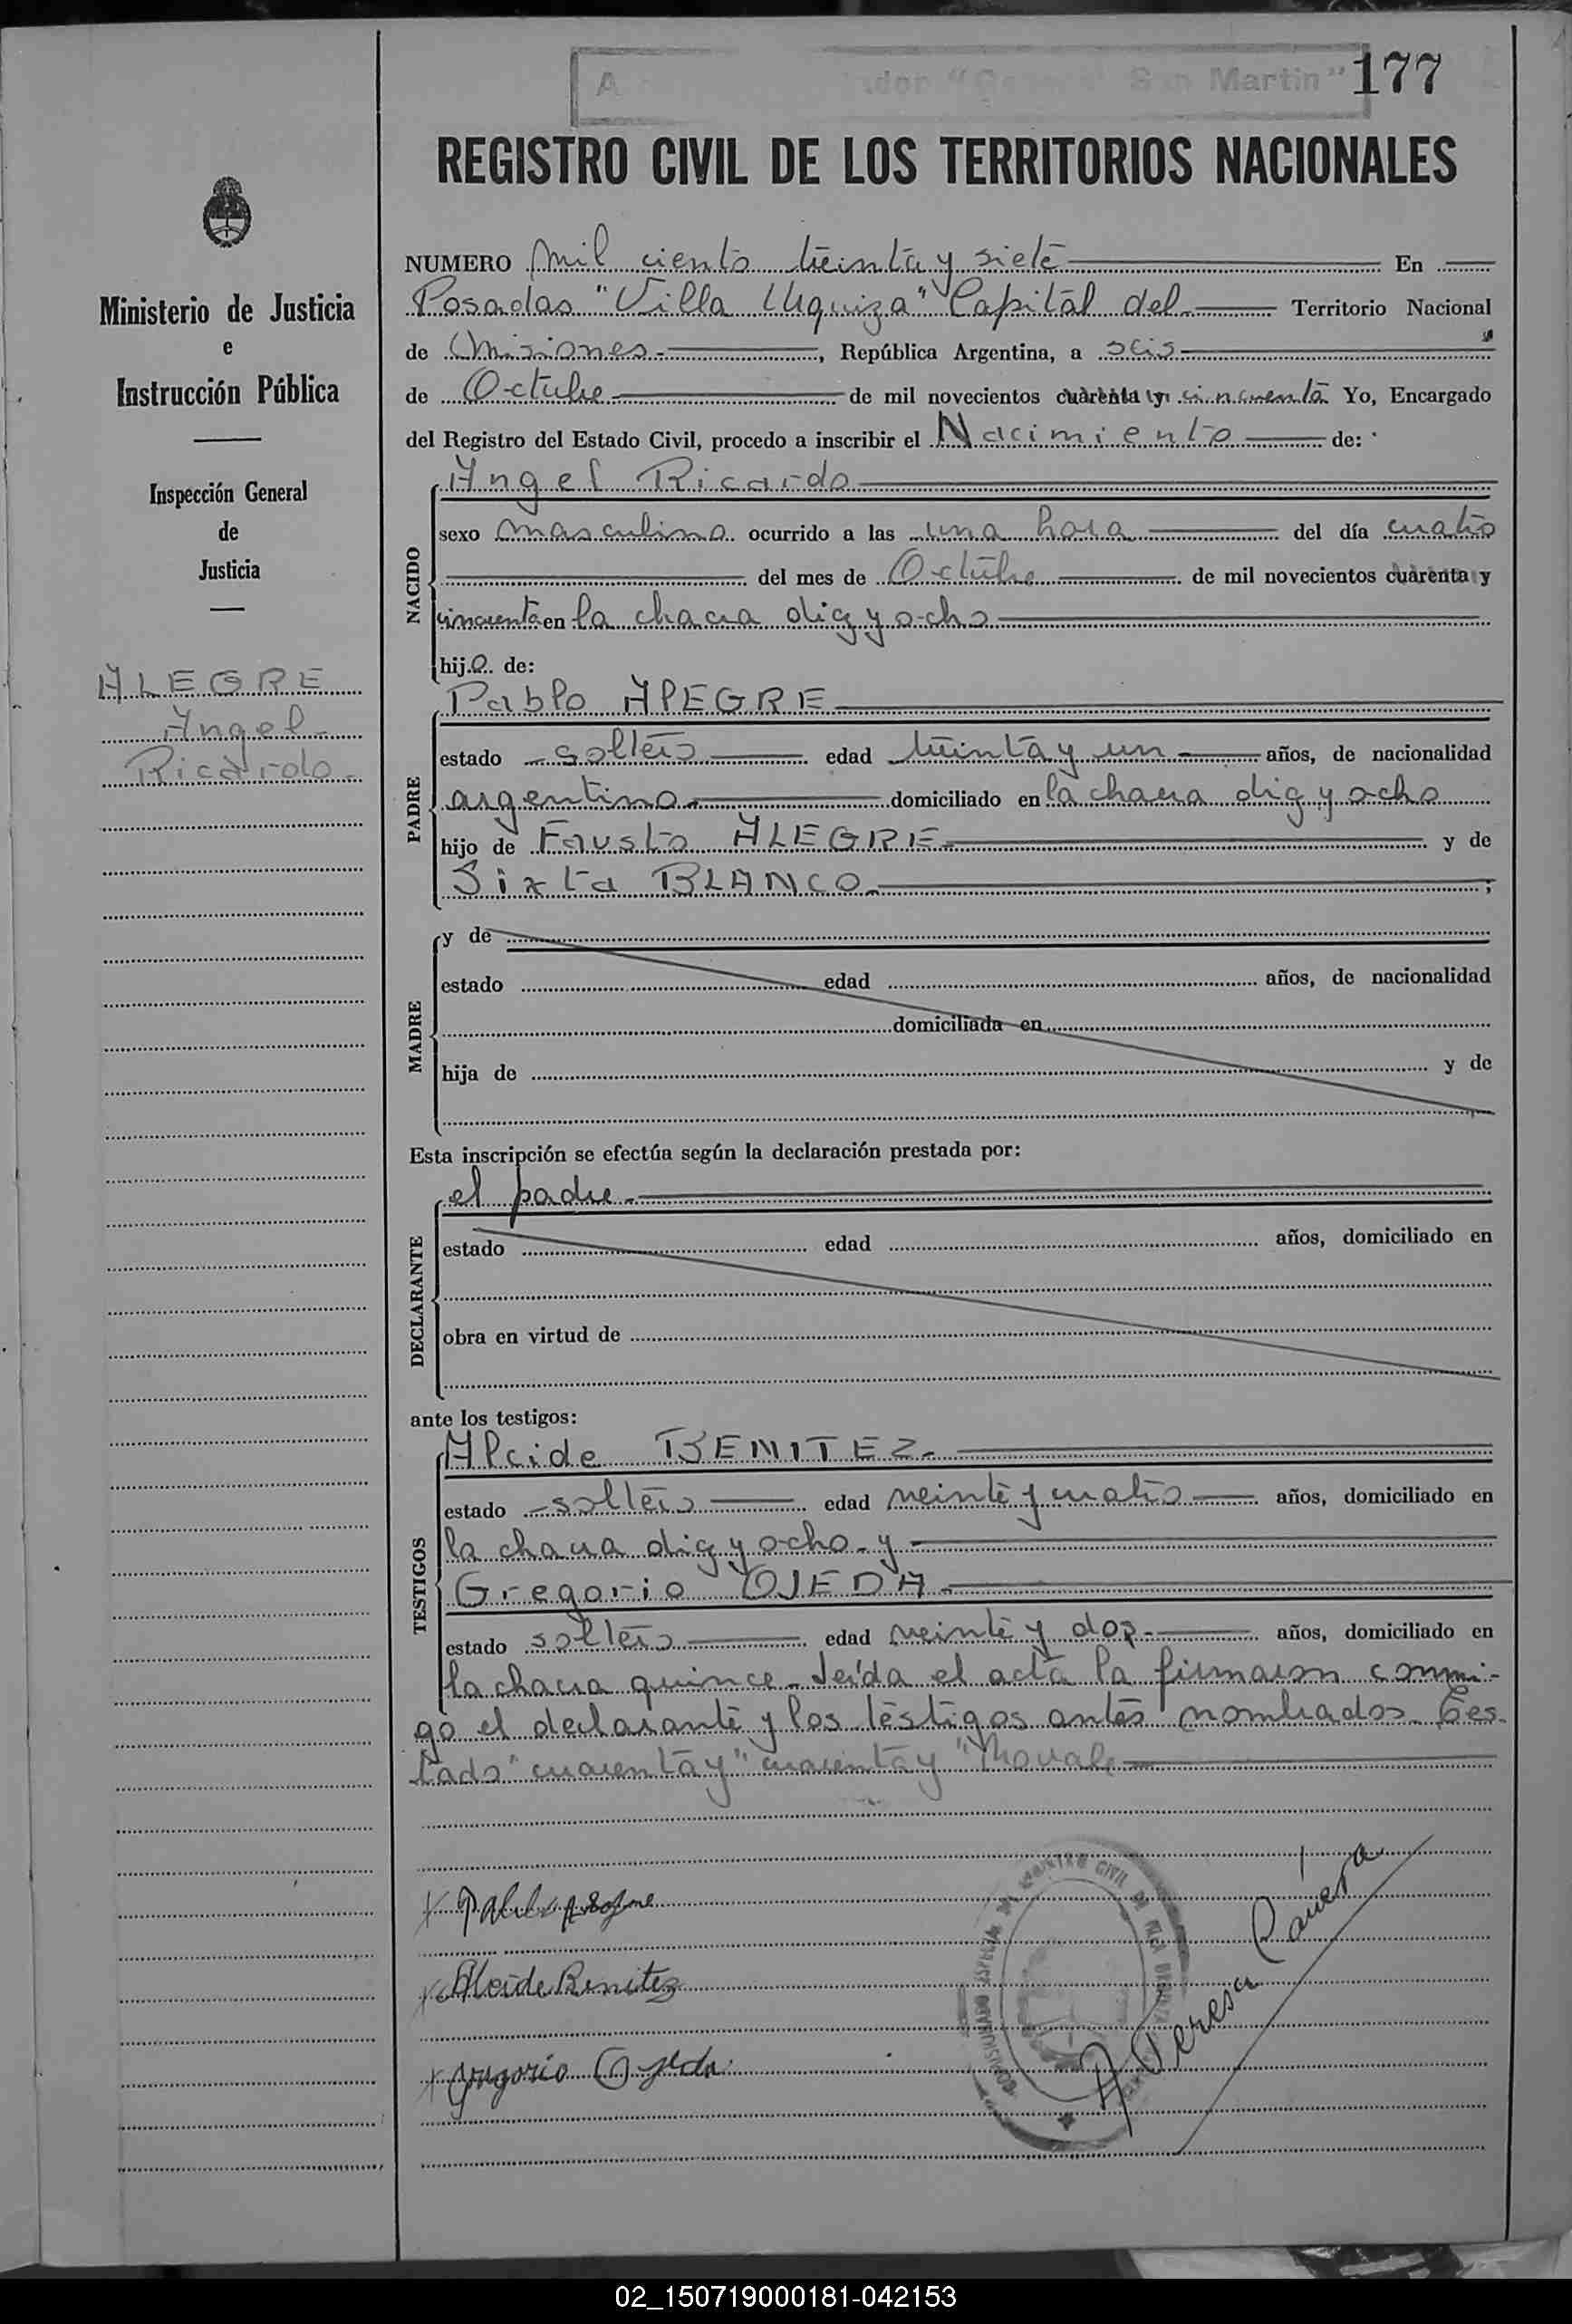 "San Martin" 177
REGISTRO CIVIL DE LOS TERRITORIOS NACIONALES
Ministerio de Justicia
e
Instrucción Pública
Inspección General
de
Justicia
ALEGRE
Angel
Ricardo
NUMERO mil ciento treinta y siete En
Posadas "Villa Urquiza" Capital del Territorio Nacional
de Misiones, República Argentina, a seis
de Octubre de mil novecientos cuarenta y cincuenta Yo, Encargado
del Registro del Estado Civil, procedo a inscribir el Nacimiento de:
NACIDO
Angel Ricardo
sexo masculino ocurrido a las una hora del día cuatro
del mes de Octubre de mil novecientos cuarenta y
cincuenta en la chacra diez y ocho
hijo de:
PADRE
Pablo ALEGRE
estado soltero edad treinta y un años, de nacionalidad
argentina domiciliado en la chacra diez y ocho
hijo de Fausto ALEGRE y de
Sixta BLANCO ;
MADRE
y de
estado edad años, de nacionalidad
domiciliada en
hija de y de
Esta inscripción se efectúa según la declaración prestada por:
DECLARANTE
el padre
estado edad años, domiciliado en
obra en virtud de
ante los testigos:
TESTIGOS
Alcide BENITEZ
estado soltero edad veinte y cuatro años, domiciliado en
la chacra diez y ocho y
Gregorio OJEDA
estado soltero edad veinte y dos años, domiciliado en
la chacra quince. Leída el acta la firmaron conmi-
go el declarante y los testigos antes nombrados. Tes-
tado "cuarenta y" cuarenta y "No vale
Alcide Benitez
Gregorio Ojeda
Teresa
02_150719000181-042153